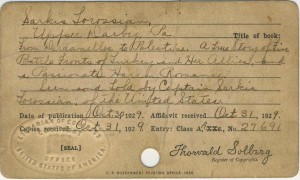 Sarkis Torossian,
Upper Darby, Pa
Title of book:
From Dardanelles to Palestine. A True Story of Five
Battle Fronts of Turkey and Her Allies, and
a Passionate Harem Romance
Seen and Told by Captain Sarkis
Torossian, of the United States.
Date of publication Oct 29, 1929. Affidavit received Oct 31, 1929.
Copies received Oct 31, 1929. Entry: Class A, XXc., No. 29691
[SEAL]
OFFICE
UNITED STATES OF AMERICA
Thorvald Solberg
Register of Copyrights.
U. S. GOVERNMENT PRINTING OFFICE